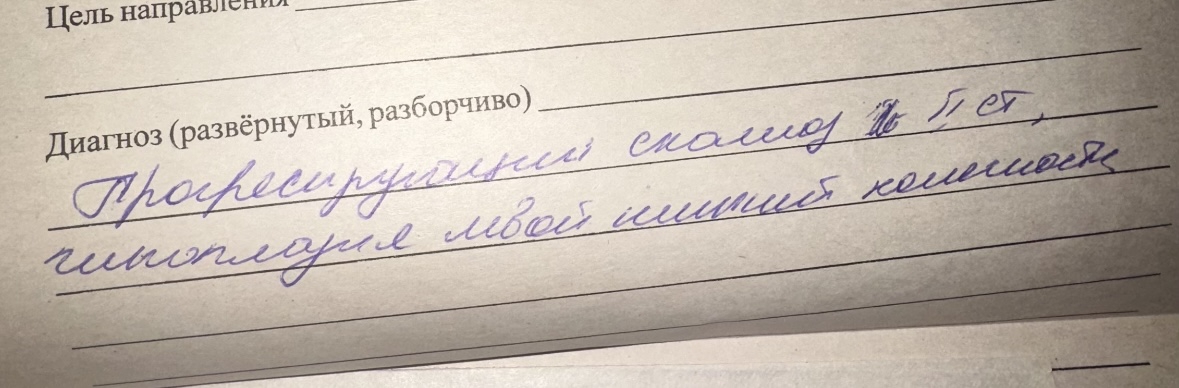 Цель направления
Диагноз (развёрнутый, разборчиво)
Прогресирующий сколиоз II ст,
гипоплазия левой нижний конечности